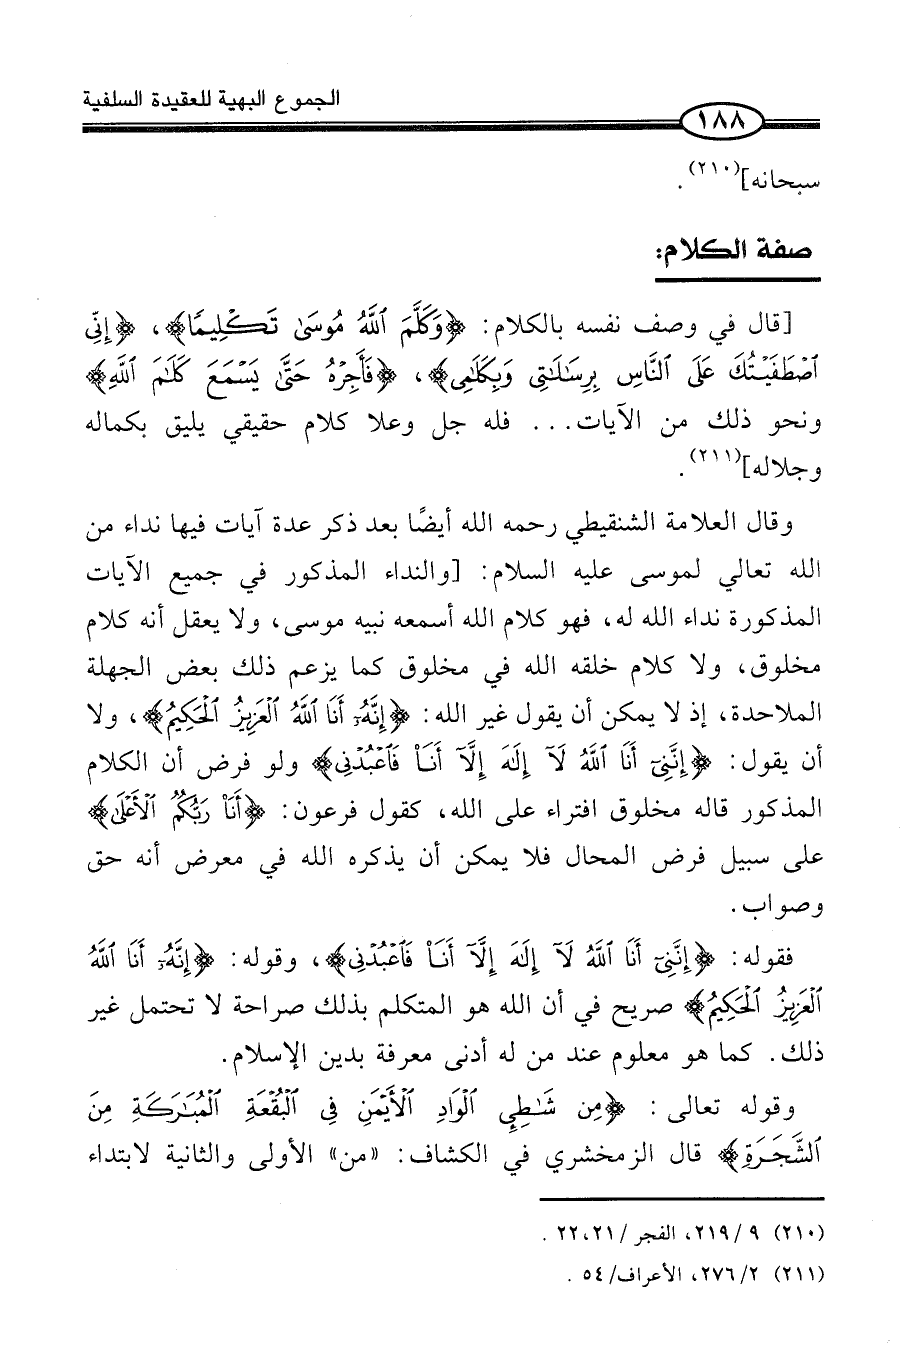 الجموع البهية للعقيدة السلفية
١٨٨
سبحانه](٢١٠).
صفة الكلام:
[قال في وصف نفسه بالكلام: ﴿وَكَلَّمَ ٱللَّهُ مُوسَىٰ تَكْلِيمًا﴾، ﴿إِنِّي
ٱصْطَفَيْتُكَ عَلَى ٱلنَّاسِ بِرِسَٰلَٰتِي وَبِكَلَٰمِي﴾، ﴿فَأَجِرْهُ حَتَّىٰ يَسْمَعَ كَلَٰمَ ٱللَّهِ﴾
ونحو ذلك من الآيات... فله جل وعلا كلام حقيقي يليق بكماله
وجلاله](٢١١).
وقال العلامة الشنقيطي رحمه الله أيضًا بعد ذكر عدة آيات فيها نداء من
الله تعالي لموسى عليه السلام: [والنداء المذكور في جميع الآيات
المذكورة نداء الله له، فهو كلام الله أسمعه نبيه موسى، ولا يعقل أنه كلام
مخلوق، ولا كلام خلقه الله في مخلوق كما يزعم ذلك بعض الجهلة
الملاحدة، إذ لا يمكن أن يقول غير الله: ﴿إِنَّهُۥٓ أَنَا ٱللَّهُ ٱلْعَزِيزُ ٱلْحَكِيمُ﴾، ولا
أن يقول: ﴿إِنَّنِيٓ أَنَا ٱللَّهُ لَآ إِلَٰهَ إِلَّآ أَنَا۠ فَٱعْبُدْنِي﴾ ولو فرض أن الكلام
المذكور قاله مخلوق افتراء على الله، كقول فرعون: ﴿أَنَا۠ رَبُّكُمُ ٱلْأَعْلَىٰ﴾
على سبيل فرض المحال فلا يمكن أن يذكره الله في معرض أنه حق
وصواب.
فقوله: ﴿إِنَّنِيٓ أَنَا ٱللَّهُ لَآ إِلَٰهَ إِلَّآ أَنَا۠ فَٱعْبُدْنِي﴾، وقوله: ﴿إِنَّهُۥٓ أَنَا ٱللَّهُ
ٱلْعَزِيزُ ٱلْحَكِيمُ﴾ صريح في أن الله هو المتكلم بذلك صراحة لا تحتمل غير
ذلك. كما هو معلوم عند من له أدنى معرفة بدين الإسلام.
وقوله تعالى: ﴿مِن شَٰطِئِ ٱلْوَادِ ٱلْأَيْمَنِ فِي ٱلْبُقْعَةِ ٱلْمُبَٰرَكَةِ مِنَ
ٱلشَّجَرَةِ﴾ قال الزمخشري في الكشاف: «من» الأولى والثانية لابتداء
(٢١٠) ٩/ ٢١٩، الفجر/ ٢١، ٢٢.
(٢١١) ٢/ ٢٧٦، الأعراف/ ٥٤.